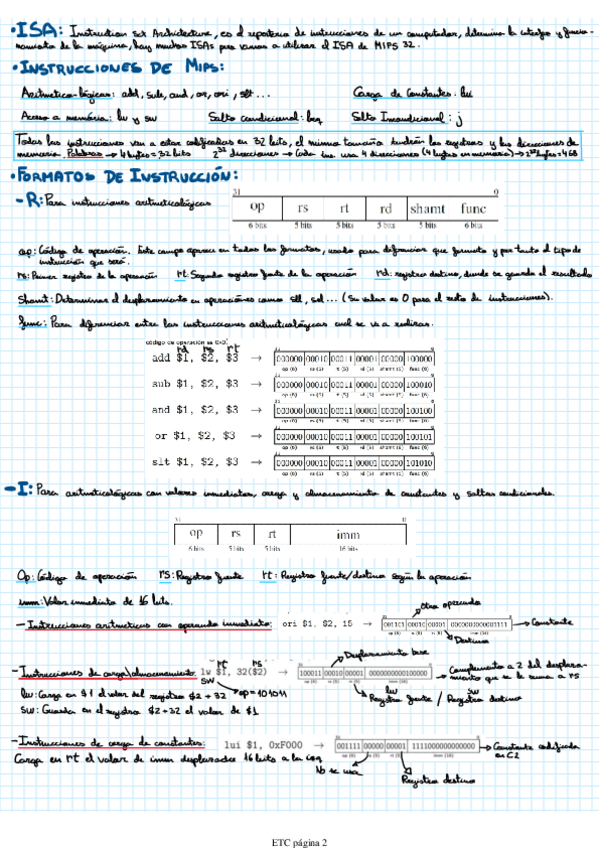 • ISA: Instruction Set Architecture, es el repertorio de instrucciones de un computador, determina la interfaz y funcio-
namiento de la máquina, hay muchas ISAs pero vamos a utilizar el ISA de MIPS 32.
• INSTRUCCIONES DE MIPS:
Aritmetico-lógicas: add, sub, and, or, ori, slt ... Carga de Constantes: lui
Acceso a memoria: lw y sw Salto condicional: beq Salto Incondicional: j
Todas las instrucciones van a estar codificadas en 32 bits, el mismo tamaño tendrán los registros y las direcciones de
memoria. Palabras → 4 bytes = 32 bits 2^32 direcciones → Cada ins. usa 4 direcciones (4 bytes en memoria) → 2^32 bytes = 4GB
• FORMATOS DE INSTRUCCIÓN:
- R: Para instrucciones aritmeticológicas
31 0
op rs rt rd shamt func
6 bits 5 bits 5 bits 5 bits 5 bits 6 bits
op: Código de operación. Este campo aparece en todos los formatos, usado para diferenciar que formato y por tanto el tipo de
instrucción que será.
rs: Primer registro de la operación rt: Segundo registro fuente de la operación rd: registro destino, donde se guarda el resultado
Shamt: Determinar el desplazamiento en operaciones como sll, (Su valor es 0 para el resto de instrucciones).
func: Para diferenciar entre las instrucciones aritmeticológicas cual se va a realizar.
código de operación es 0x0
rd rs rt
add $1, $2, $3 → 000000 00010 00011 00001 00000 100000
op (6) rs (5) rt (5) rd (5) shamt (5) func (6)
sub $1, $2, $3 → 000000 00010 00011 00001 00000 100010
op (6) rs (5) rt (5) rd (5) shamt (5) func (6)
and $1, $2, $3 → 000000 00010 00011 00001 00000 100100
op (6) rs (5) rt (5) rd (5) shamt (5) func (6)
or $1, $2, $3 → 000000 00010 00011 00001 00000 100101
op (6) rs (5) rt (5) rd (5) shamt (5) func (6)
slt $1, $2, $3 → 000000 00010 00011 00001 00000 101010
op (6) rs (5) rt (5) rd (5) shamt (5) func (6)
- I: Para aritmeticológicas con valores inmediatos, carga y almacenamiento de constantes y saltos condicionales.
31 0
op rs rt imm
6 bits 5 bits 5 bits 16 bits
Op: Código de operación rs: Registro fuente rt: Registro fuente/destino según la operación
imm: Valor inmediato de 16 bits.
Otro operando
- Instrucciones aritmeticas con operando inmediato: ori $1, $2, 15 → 001101 00010 00001 0000000000001111 → Constante
Destino
Desplazamiento base
rt rs
- Instrucciones de carga/almacenamiento: lw $1, 32($2) → 100011 00010 00001 0000000000100000 Complemento a 2 del desplaza-
miento que se le suma a rs
SW
lw: Carga en $1 el valor del registro $2 + 32 op=101011 lw Registro fuente / sw Registro destino
sw: Guarda en el registro $2+32 el valor de $1
- Instrucciones de carga de constantes: lui $1, 0xF000 → 001111 00000 00001 1111000000000000 → Constante codificada
en C2
Carga en rt el valor de imm desplazados 16 bits a la izq
No se usa
Registro destino
ETC página 2